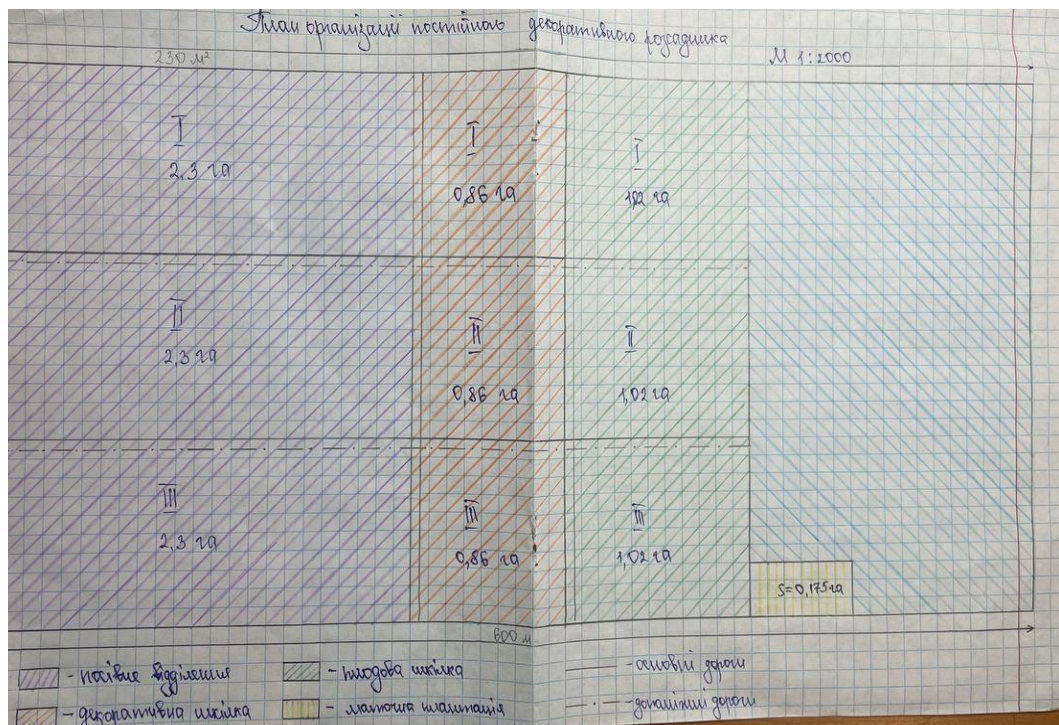 План організації постійного декоративного розсадника
230 м²
М 1:2000
I
2,3 га
I
0,86 га
I
1,02 га
II
2,3 га
II
0,86 га
II
1,02 га
III
2,3 га
III
0,86 га
III
1,02 га
S=0,175 га
600 м
- посівне відділення
- плодова шкілка
- основні дороги
- декоративна шкілка
- маточна плантація
- допоміжні дороги